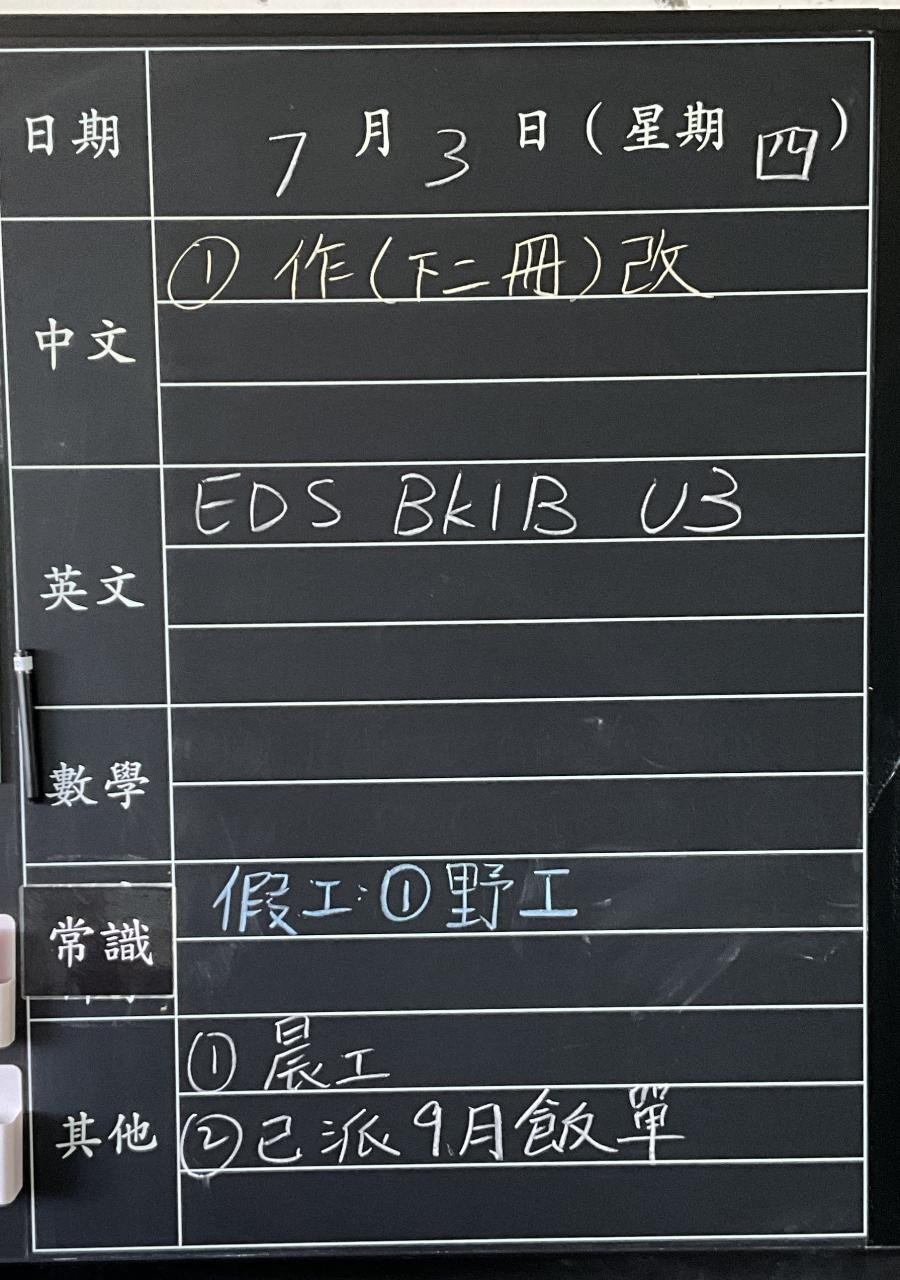 日期 7月3日(星期四)
中文 ① 作(下二冊)改
英文 EDS Bk1B U3
數學
常識 假工:①野工
其他 ① 晨工
② 已派9月飯單